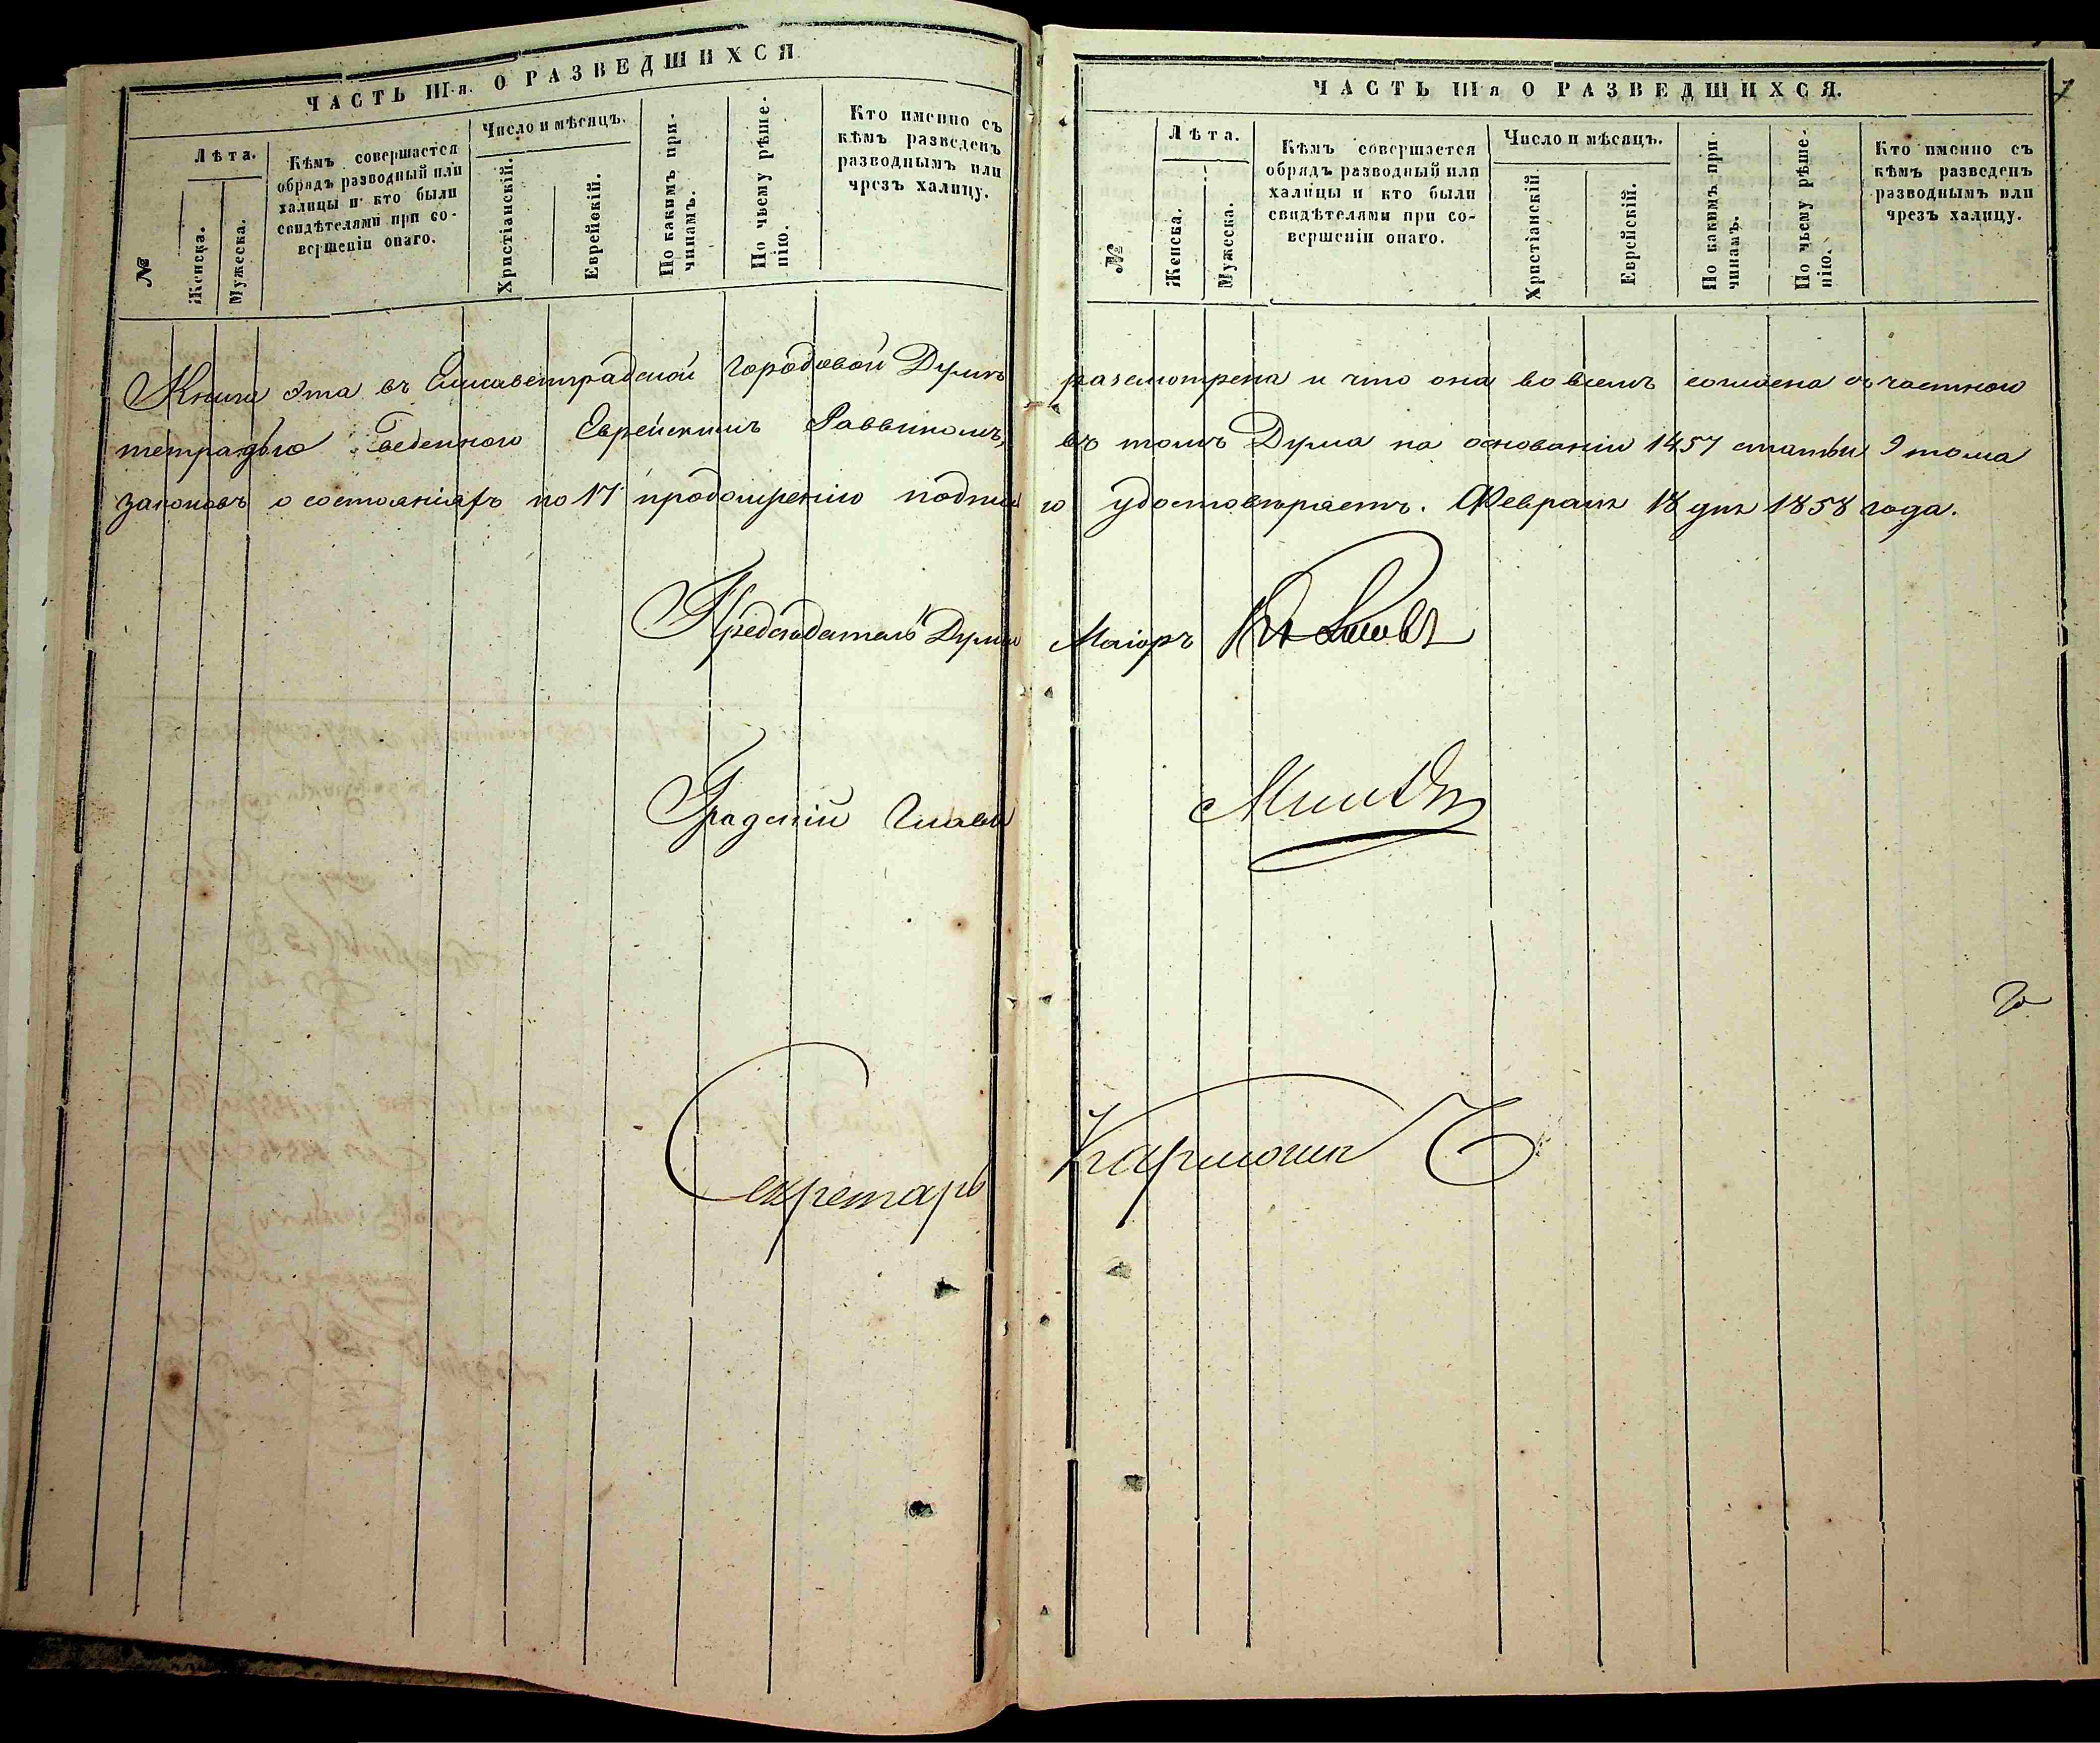 ЧАСТЬ III-я. О РАЗВЕДШИХСЯ
№
Лѣта.
Женска.
Мужеска.
Кѣмъ совершается
обрядъ разводный или
халицы и кто были
свидѣтелями при со-
вершеніи онаго.
Число и мѣсяцъ.
Христіанскій.
Еврейскій.
По какимъ при-
чинамъ.
По чьему рѣше-
нію.
Кто именно съ
кѣмъ разведенъ
разводнымъ или
чрезъ халицу.
ЧАСТЬ III я О РАЗВЕДШИХСЯ.
№
Лѣта.
Женска.
Мужеска.
Кѣмъ совершается
обрядъ разводный или
халицы и кто были
свидѣтелями при со-
вершеніи онаго.
Число и мѣсяцъ.
Христіанскій.
Еврейскій.
По какимъ при-
чинамъ.
По чьему рѣше-
нію.
Кто именно съ
кѣмъ разведенъ
разводнымъ или
чрезъ халицу.
Книга эта въ Елисаветградской Городовой Думѣ разсмотрена и что она во всемъ согласна съ частною
тетрадью веденною Еврейскимъ Раввиномъ, въ томъ Дума на основаніи 1457 статьи 9 тома
законовъ о состояніяхъ по 17 продолженію подписью удостовѣряетъ. Февраля 18 дня 1858 года.
Председатель Думы Маіоръ
Градскій Глава
Секретарь